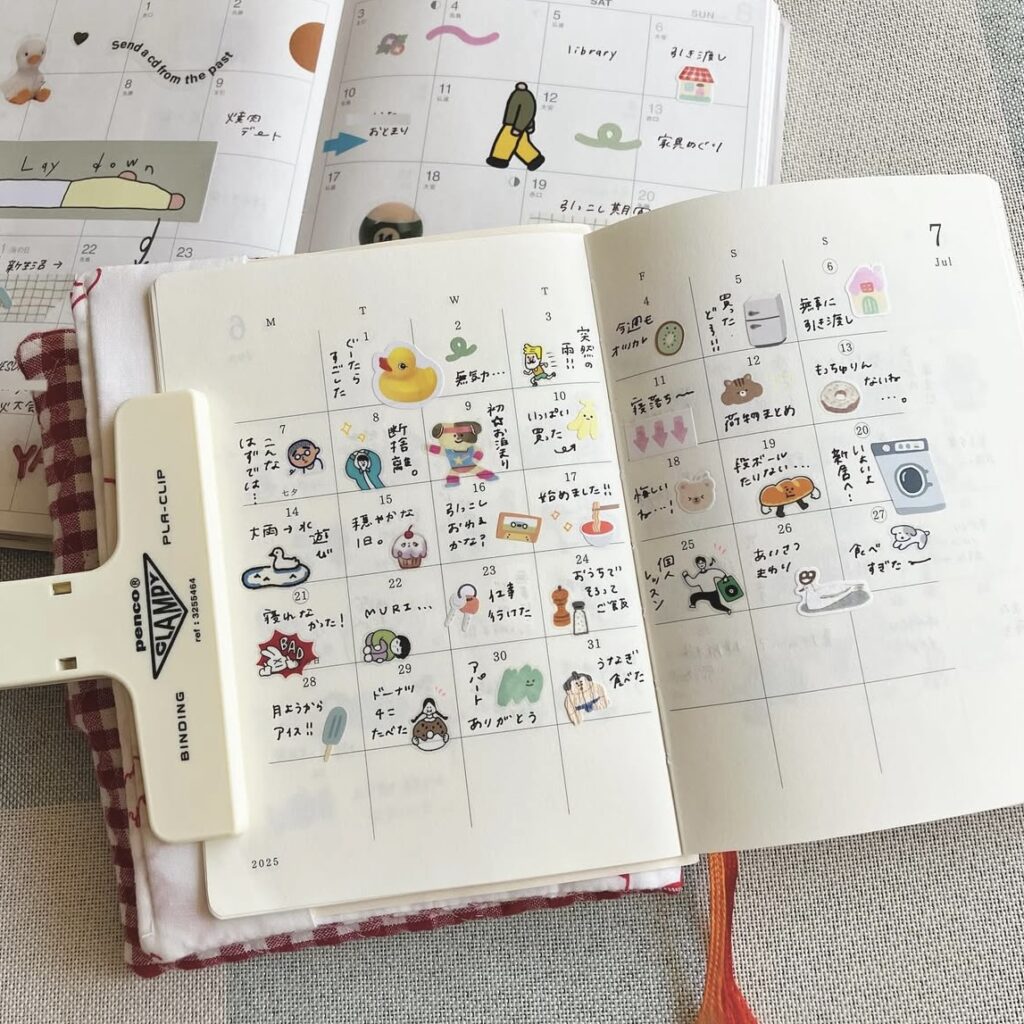 SAT
SUN
8
1
2
3
4
5
6
Send a cd from the past
library
引き渡し
8
9
10
11
12
13
焼肉
デート
おとまり
家具めぐり
Lay down
17
18
19
20
引っこし期間
海の日
22
23
新生活→
7
Jul
M
T
W
T
F
S
S
1
ぐーたら
すごした
2
無気力…
3
突然の
雨!!
4
今週も
オツカレ
5
買った
どー!!
6
無事に
引き渡し
7
こんな
はずでは…
七夕
8
断捨離。
9
初☆お泊まり
10
いっぱい
買った
11
寝落ち〜
12
荷物まとめ
13
もちゅりん
ないね
…。
14
大雨→水
遊び
15
穏やかな
1日。
16
引っこし
おわる
かな?
17
始めました!!
18
悔しい
ね…!
19
段ボール
たりない…
20
いよいよ
新居へ…
21
寝れな
かった!
BAD
22
MURI...
23
仕事
行けた
24
おうちで
そろって
ご飯
25
個人
レッスン
26
あいさつ
まわり
27
食べ
すぎた〜
28
月ようから
アイス!!
29
ドーナツ
4コ
たべた
30
アパート
ありがとう
31
うなぎ
食べた
2025
penco®
CLAMPY
ref : 3255464
BINDING
PLA-CLIP